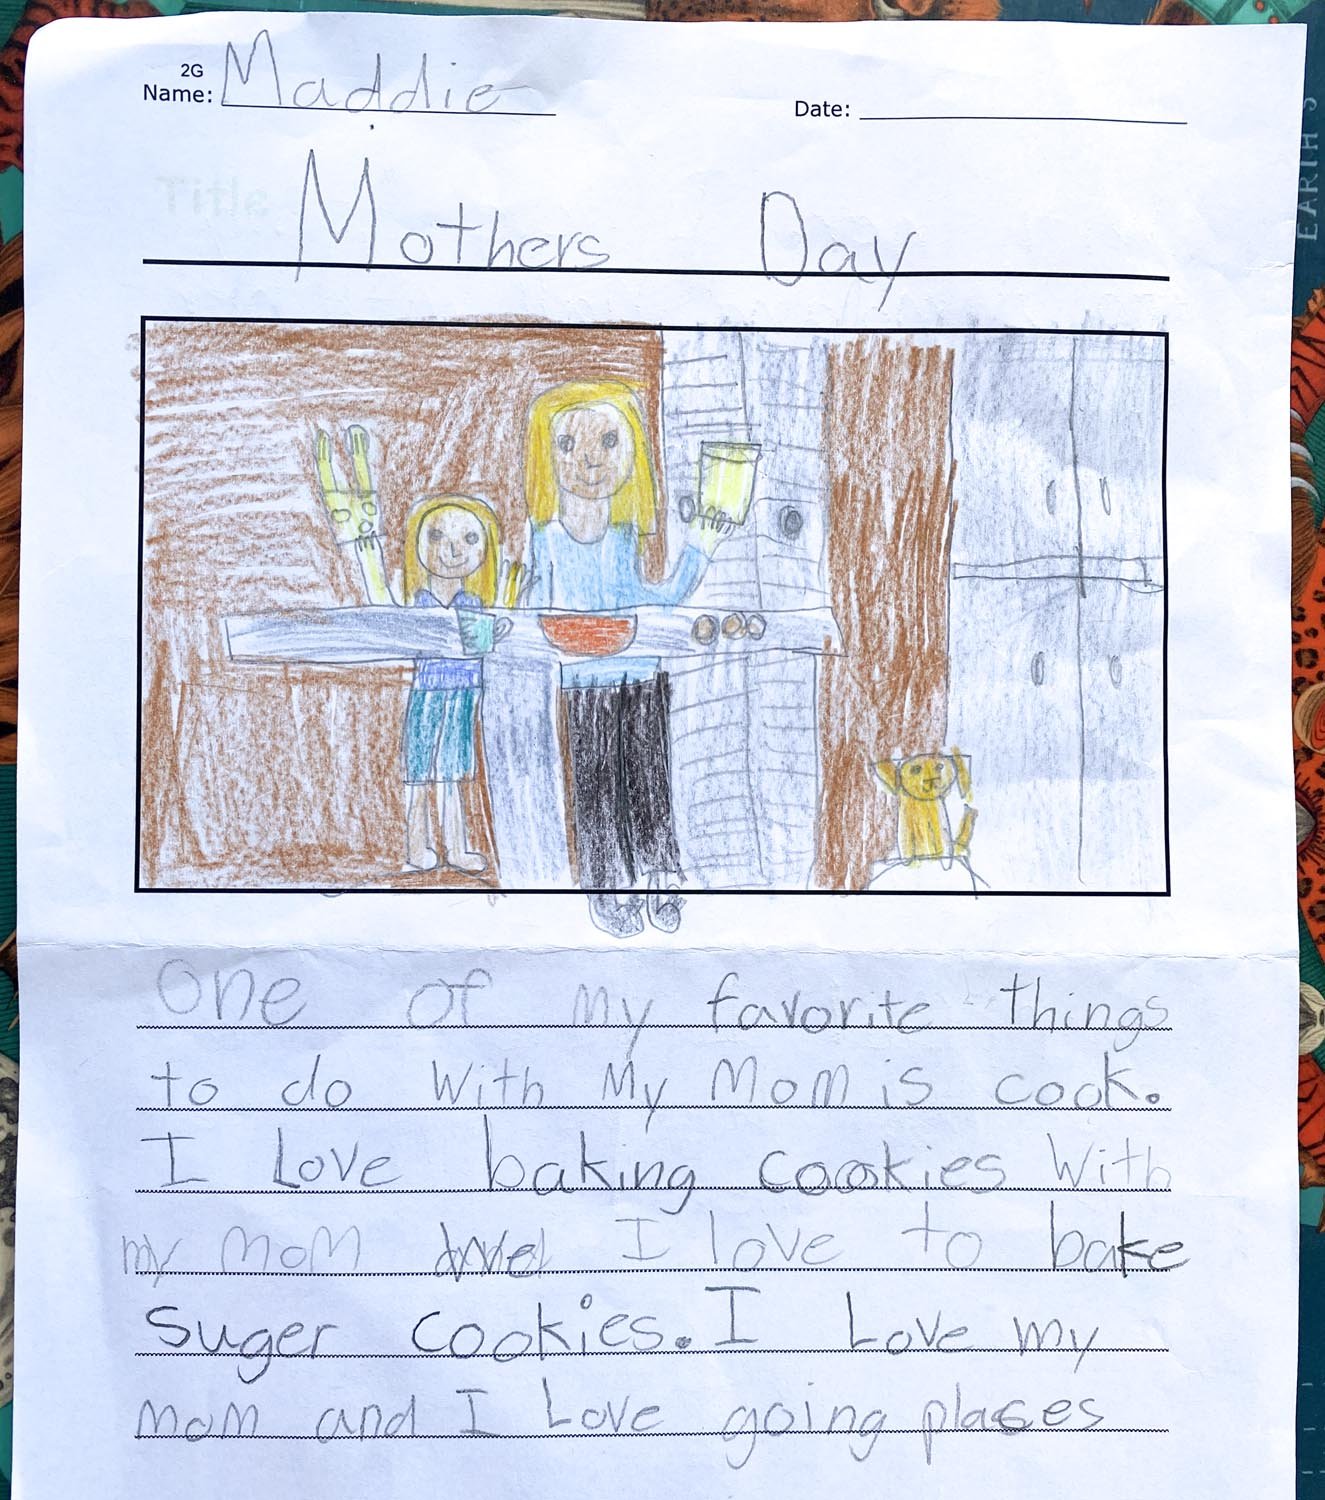 2G
Name: Maddie Date:
Title
Mothers Day
One of my favorite things
to do with My Mom is cook.
I Love baking cookies with
my mom I love to bake
suger cookies. I Love my
mom and I Love going plases
EARTH'S